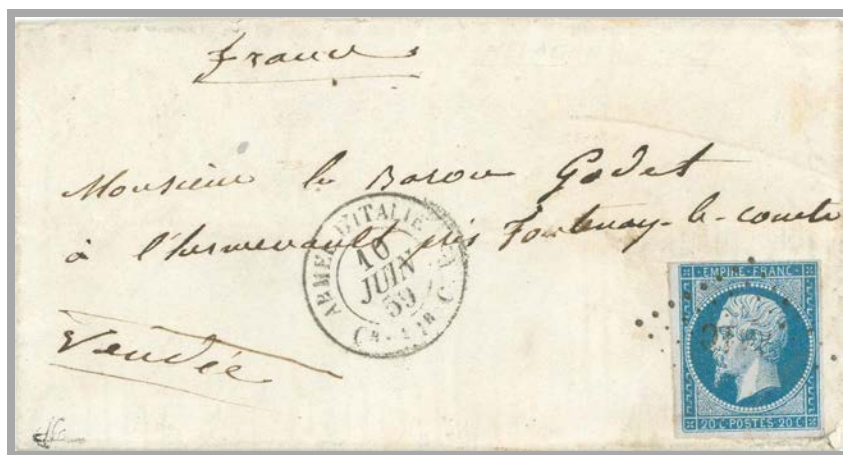 france
Monsieur le Baron Godet
à l'hermenault près Fontenay-le-comte
Vendée
ARMEE D'ITALIE
10
JUIN
59
EMPIRE FRANC
20 C POSTES 20 C